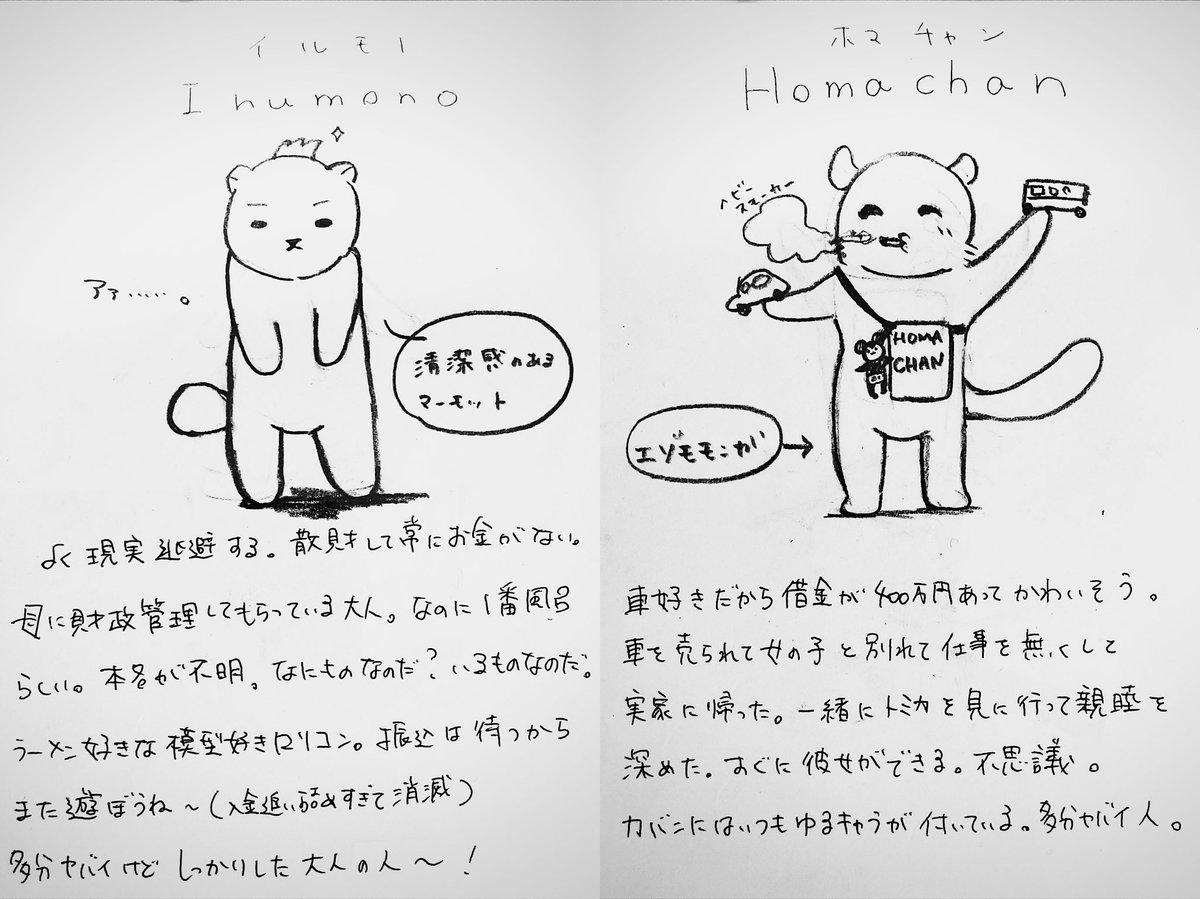 イルモノ
Irumono
アァ……。
清潔感のある
マーモット
よく現実逃避する。散財して常にお金がない。
母に財政管理してもらっている大人。なのに1番風呂
らしい。本名が不明。なにものなのだ?いるものなのだ。
ラーメン好きな模型好きロリコン。振込は待つから
また遊ぼうね〜(入金追い舐めすぎて消滅)
多分ヤバイけどしっかりした大人の人〜!
ホマチャン
Homachan
ヘビー
スモーカー
HOMA
CHAN
エゾモモンガ
車好きだから借金が400万円あってかわいそう。
車を売られて女の子と別れて仕事を無くして
実家に帰った。一緒にトミカを見に行って親睦を
深めた。すぐに彼女ができる。不思議。
カバンにはいつもゆるキャラが付いている。多分ヤバイ人。